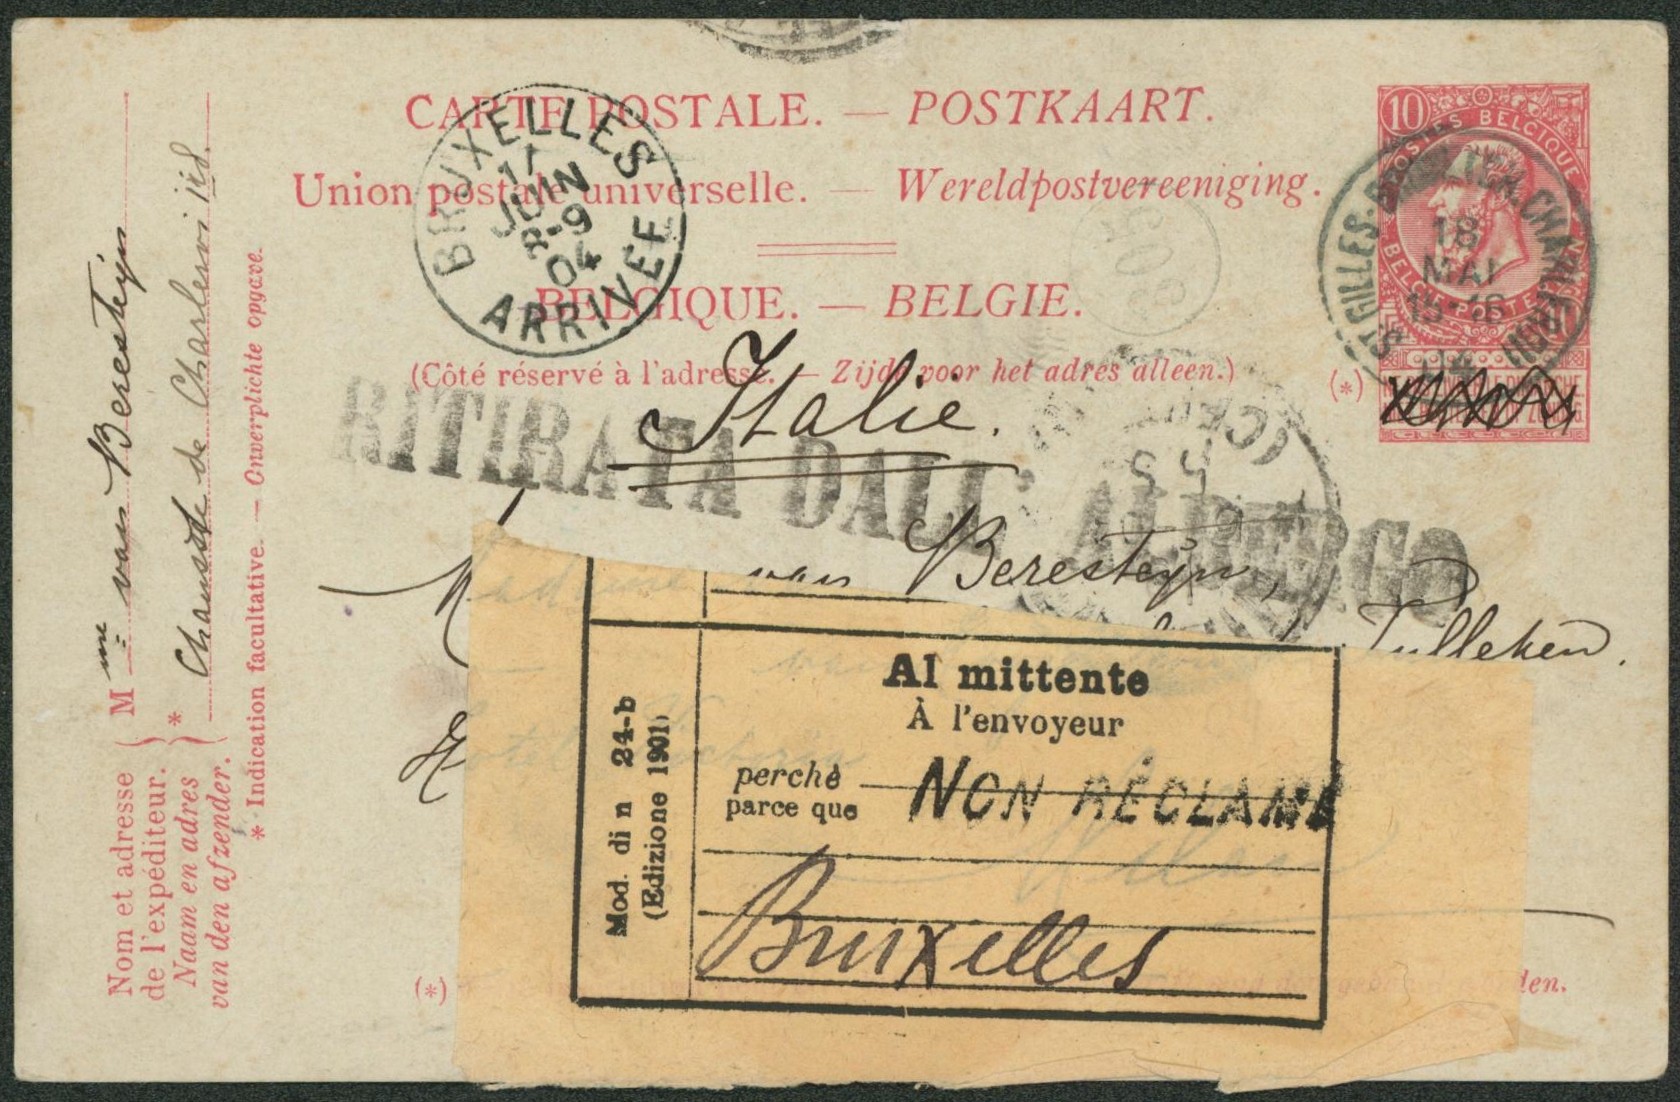 CARTE POSTALE. — POSTKAART.
Union postale universelle. — Wereldpostvereeniging.
BELGIQUE. — BELGIE.
(Côté réservé à l'adresse. — Zijde voor het adres alleen.)
10
POSTES BELGIQUE
ST GILLES-BRUXELLES
CHARLEROI
18
MAI
15-16
04
(*)
BRUXELLES
17
JUIN
8-9
04
ARRIVÉE
Italie.
RITIRATA DALL' ALBERGO
van Beresteyn,
Tulleken.
Al mittente
À l'envoyeur
perchè
parce que
NON RÉCLAMÉ
Bruxelles
Mod. di n 24-b
(Edizione 1901)
Madame
van
Hotel
Milan
(*)
den.
Nom et adresse
de l'expéditeur.
Naam en adres
van den afzender.
Mme van Beresteyn
* Chaussée de Charleroi
* Indication facultative. — Onverplichte opgave.